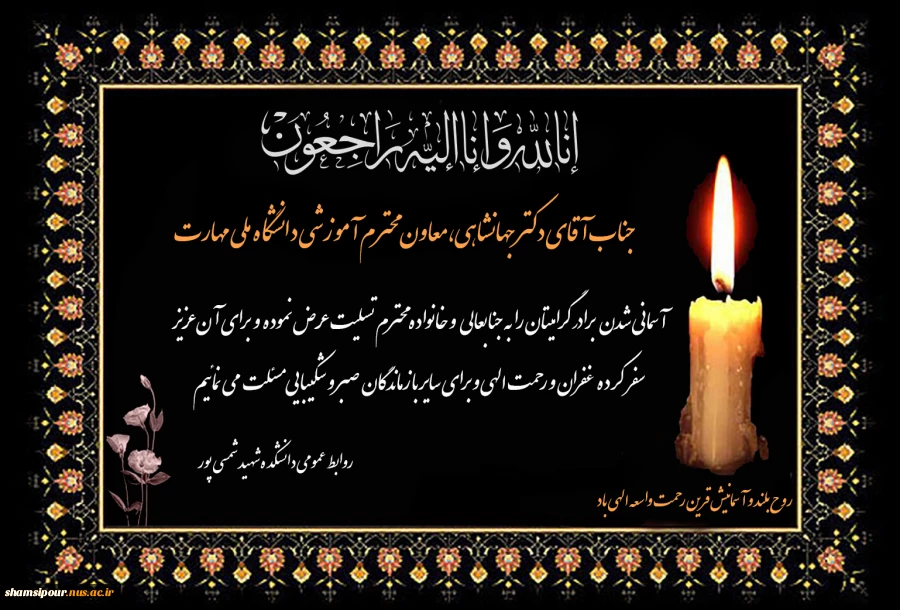 إنا لله وإنا إلیه راجعون
جناب آقای دکتر جهانشاهی، معاون محترم آموزشی دانشگاه ملی مهارت
آسمانی شدن برادر گرامیتان را به جنابعالی و خانواده محترم تسلیت عرض نموده و برای آن عزیز
سفر کرده غفران و رحمت الهی و برای سایر بازماندگان صبر و شکیبایی مسئلت می نمائیم
روابط عمومی دانشکده شهید شمسی پور
روح بلند و آسمانیش قرین رحمت واسعه الهی باد
shamsipour.nus.ac.ir